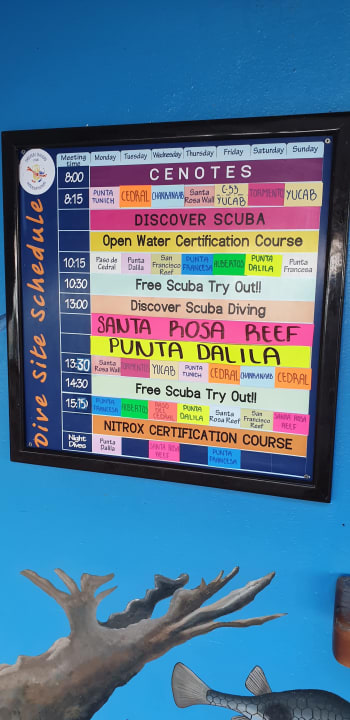 Dive site schedule
Meeting time Monday Tuesday Wednesday Thursday Friday Saturday Sunday
8:00 CENOTES
8:15 PUNTA TUNICH CEDRAL CHANKANAAB Santa Rosa Wall C-53 YUCAB TORMENTO YUCAB
DISCOVER SCUBA
Open Water Certification Course
10:15 Paso de Cedral Punta Dalila San Francisco Reef PUNTA FRANCESA ALBERTOS PUNTA DALILA Punta Francesa
10:30 Free Scuba Try Out!!
13:00 Discover Scuba Diving
SANTA ROSA REEF
PUNTA DALILA
13:30 Santa Rosa Wall TORMENTO YUCAB PUNTA TUNICH CEDRAL CHANKANAAB CEDRAL
14:30 Free Scuba Try Out!!
15:15 PUNTA FRANCESA ALBERTOS PASO DEL CEDRAL PUNTA DALILA Santa Rosa Reef San Francisco Reef SANTA ROSA REEF
NITROX CERTIFICATION COURSE
Night Dives Punta Dalila SANTA ROSA REEF PUNTA FRANCESA